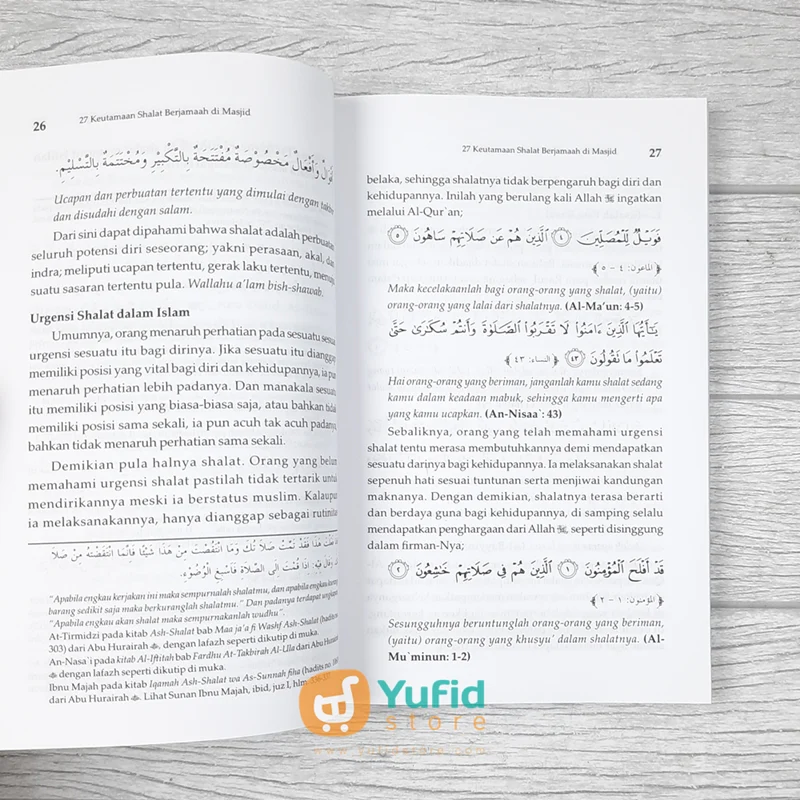 26
27 Keutamaan Shalat Berjamaah di Masjid
وَأَفْعَالٌ مَخْصُوْصَةٌ مُفْتَتَحَةٌ بِالتَّكْبِيْرِ وَمُخْتَتَمَةٌ بِالتَّسْلِيْمِ.
Ucapan dan perbuatan tertentu yang dimulai dengan
dan disudahi dengan salam.
Dari sini dapat dipahami bahwa shalat adalah perbuatan
seluruh potensi diri seseorang; yakni perasaan, akal, dan
indra; meliputi ucapan tertentu, gerak laku tertentu, menuju
suatu sasaran tertentu pula. Wallahu a'lam bish-shawab.
Urgensi Shalat dalam Islam
Umumnya, orang menaruh perhatian pada sesuatu
urgensi sesuatu itu bagi dirinya. Jika sesuatu itu dianggap
memiliki posisi yang vital bagi diri dan kehidupannya, ia pun
menaruh perhatian lebih padanya. Dan manakala sesuatu
itu memiliki posisi yang biasa-biasa saja, atau bahkan tidak
memiliki posisi sama sekali, ia pun acuh tak acuh padanya,
bahkan tidak menaruh perhatian sama sekali.
Demikian pula halnya shalat. Orang yang belum
memahami urgensi shalat pastilah tidak tertarik untuk
mendirikannya meski ia berstatus muslim. Kalaupun
ia melaksanakannya, hanya dianggap sebagai rutinitas
هَذَا فَقَدْ تَمَّتْ صَلَاتُكَ وَمَا انْتَقَصْتَ مِنْ هَذَا شَيْئًا فَإِنَّمَا انْتَقَصْتَهُ مِنْ
وَقَالَ فِيْهِ: إِذَا قُمْتَ إِلَى الصَّلَاةِ فَأَسْبِغِ الْوُضُوْءَ.
"Apabila engkau kerjakan ini maka sempurnalah shalatmu, dan apabila engkau
barang sedikit saja maka berkuranglah shalatmu." Dan padanya terdapat
"Apabila engkau akan shalat maka sempurnakanlah wudhu".
At-Tirmidzi pada kitab Ash-Shalat bab Maa ja'a fi Washf Ash-Shalat (hadits
303) dari Abu Hurairah, dengan lafazh seperti dikutip di muka.
An-Nasa'i pada kitab Al-Iftitah bab Fardhu At-Takbirah Al-Ula dari Abu
dengan lafazh seperti dikutip di muka.
Ibnu Majah pada kitab Iqamah Ash-Shalat wa As-Sunnah fiha (hadits no.
dari Abu Hurairah. Lihat Sunan Ibnu Majah, ibid, juz I, hlm
27 Keutamaan Shalat Berjamaah di Masjid
27
belaka, sehingga shalatnya tidak berpengaruh bagi diri dan
kehidupannya. Inilah yang berulang kali Allah ﷻ ingatkan
melalui Al-Qur`an;
فَوَيْلٌ لِّلْمُصَلِّينَ ﴿٤﴾ الَّذِينَ هُمْ عَن صَلَاتِهِمْ سَاهُونَ ﴿٥﴾
﴿الماعون: ٤ – ٥﴾
Maka kecelakaanlah bagi orang-orang yang shalat, (yaitu)
orang-orang yang lalai dari shalatnya. (Al-Ma'un: 4-5)
يَٰٓأَيُّهَا الَّذِينَ ءَامَنُوا لَا تَقْرَبُوا الصَّلَوٰةَ وَأَنتُمْ سُكَٰرَىٰ حَتَّىٰ
تَعْلَمُوا مَا تَقُولُونَ ﴿٤٣﴾ ﴿النساء: ٤٣﴾
Hai orang-orang yang beriman, janganlah kamu shalat sedang
kamu dalam keadaan mabuk, sehingga kamu mengerti apa
yang kamu ucapkan. (An-Nisaa`: 43)
Sebaliknya, orang yang telah memahami urgensi
shalat tentu merasa membutuhkannya demi mendapatkan
sesuatu darinya bagi kehidupannya. Ia melaksanakan shalat
sepenuh hati sesuai tuntunan serta menjiwai kandungan
maknanya. Dengan demikian, shalatnya terasa berarti
dan berdaya guna bagi kehidupannya, di samping selalu
mendapatkan penghargaan dari Allah ﷻ, seperti disinggung
dalam firman-Nya;
قَدْ أَفْلَحَ الْمُؤْمِنُونَ ﴿١﴾ الَّذِينَ هُمْ فِي صَلَاتِهِمْ خَٰشِعُونَ ﴿٢﴾
﴿المؤمنون: ١ – ٢﴾
Sesungguhnya beruntunglah orang-orang yang beriman,
(yaitu) orang-orang yang khusyu' dalam shalatnya. (Al-
Mu`minun: 1-2)
Yufid
store